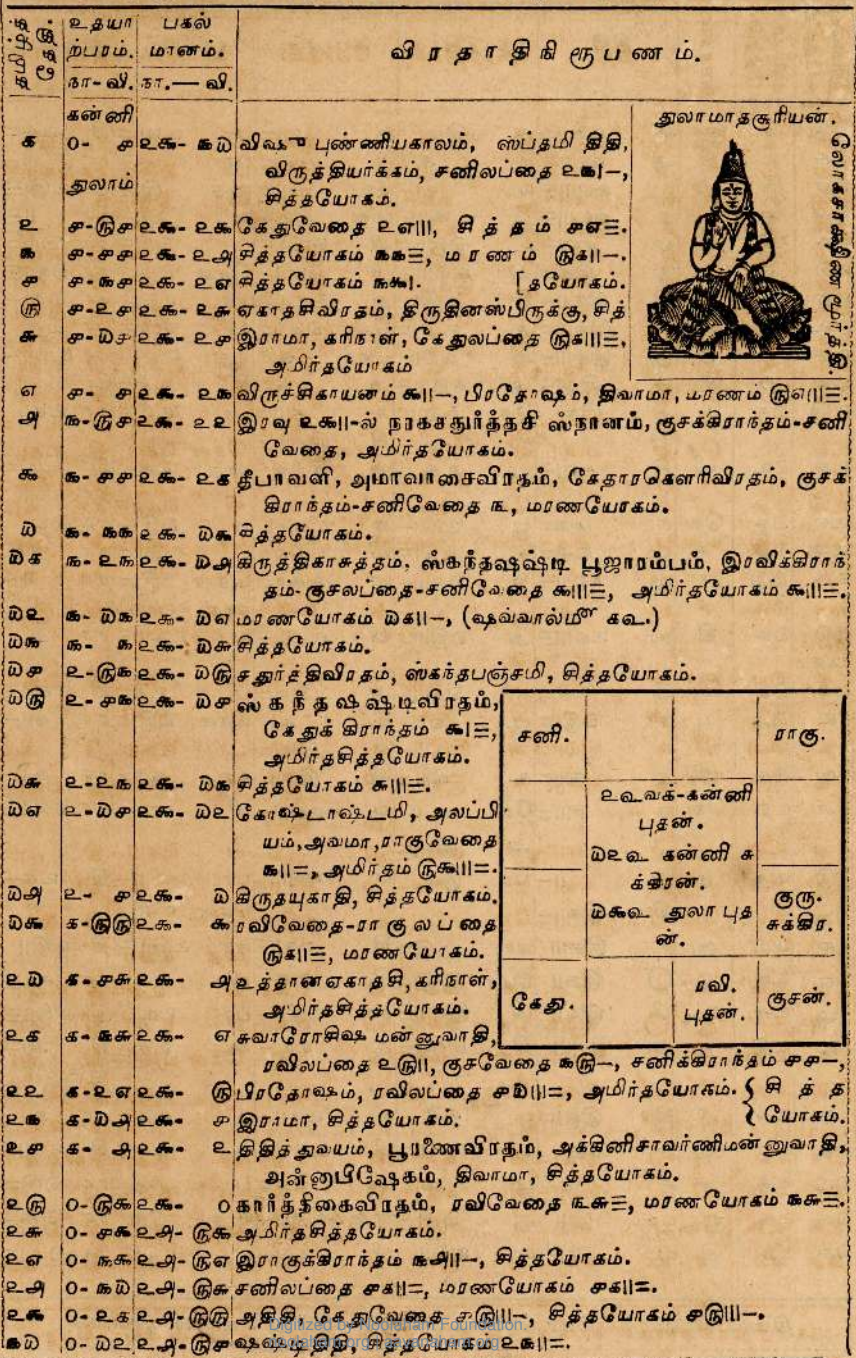 தமிழ்த் தேதி.
உதயா பகல்
ற்பரம். மானம்.
விரதாதிநிரூபணம்.
நா- வி. நா.— வி.
கன்னி
துலாமாதசூரியன்.
லோகசாக்ஷிண மூர்த்தி.
௧ ௦- ௪ ௨௯- ௩௰ விஷு புண்ணியகாலம், ஸப்தமி திதி,
துலாம் விருத்தியர்க்கம், சனிலப்தை
சித்தயோகம்.
௨ ௪-௫௪ ௨௯- ௨௯ கேதுவேதை ௨௭|||, சித்தம் ௪௭☰.
௩ ௪-௪௪ ௨௯- ௨௮ சித்தயோகம் ௩௩☰, மரணம் ௫௧||–.
௪ ௪-௩௪ ௨௯- ௨௭ சித்தயோகம் ௩௯|. [தயோகம்.
௫ ௪-௨௪ ௨௯- ௨௬ ஏகாதசிவிரதம், திருதினஸ்பிருக்கு, சித்
௬ ௪-௰௪ ௨௯- ௨௪ இராமா, கரிநாள், கேதுலப்தை ௫௧|||☰,
அமிர்தயோகம்
௭ ௪- ௪ ௨௯- ௨௩ விருச்சிகாயனம் ௯||–, பிரதோஷம், திவாமா, மரணம் ௫௭|||☰.
௮ ௩-௫௪ ௨௯- ௨௨ இரவு ௨௯||-ல் நரகசதுர்த்தசி ஸ்நானம், குசக்கிராந்தம்-சனி
வேதை, அமிர்தயோகம்.
௯ ௩-௪௪ ௨௯- ௨௧ தீபாவளி, அமாவாசைவிரதம், கேதாரகௌரிவிரதம், குசக்
கிராந்தம்-சனிவேதை மரணயோகம்.
௰ ௩- ௩௩ ௨௯- ௰௯ சித்தயோகம்.
௰௧ ௩- ௨௩ ௨௯- ௰௮ கிருத்திகாசுத்தம், ஸ்கந்தஷஷ்டி பூஜாரம்பம், இரவிக்கிராந்
தம்-குசலப்தை-சனிவேதை ௯|||☰, அமிர்தயோகம் ௯|||☰.
௰௨ ௩- ௰௩ ௨௯- ௰௭ மரணயோகம் ௰௧||–, (ஷவ்வால்மீ
௰௩ ௩- ௩ ௨௯- ௰௬ சித்தயோகம்.
௰௪ ௨-௫௩ ௨௯- ௰௫ சதுர்த்திவிரதம், ஸ்கந்தபஞ்சமி, சித்தயோகம்.
௰௫ ௨- ௪௩ ௨௯- ௰௪ ஸ்கந்தஷஷ்டிவிரதம்,
கேதுக் கிராந்தம் ௯|☰,
அமிர்தசித்தயோகம்.
௰௬ ௨-௨௩ ௨௯- ௰௩ சித்தயோகம் ௬|||☰.
௰௭ ௨-௰௪ ௨௯- ௰௨ கோஷ்டாஷ்டமி, அலப்பி
யம், அவமா, ராகுவேதை
௩||=, அமிர்தம் ௫௯|||=.
௰௮ ௨- ௪ ௨௯- ௰ கிருதயுகாதி, சித்தயோகம்.
௰௯ ௧-௫௫ ௨௯- ௯ ரவிவேதை-ராகுலப்தை
௫௧||☰, மரணயோகம்.
௨௰ ௧-௪௬ ௨௯- ௮ உத்தானஏகாதசி, கரிநாள்,
அமிர்தசித்தயோகம்.
௨௧ ௧-௩௬ ௨௯- ௭ சுவாரோசிஷ மன்னுவாதி,
ரவிலப்தை ௨௫||, குசவேதை ௩௫–, சனிக்கிராந்தம் ௪௪–,
௨௨ ௧-௨௭ ௨௯- ௫ பிரதோஷம், ரவிலப்தை ௪௰|||=, அமிர்தயோகம். { சித்த
௨௩ ௧-௰௮ ௨௯- ௪ இராமா, சித்தயோகம். { யோகம்.
௨௪ ௧- ௮ ௨௯- ௨ திதித்துவயம், பூரணைவிரதம், அக்கினிசாவர்ணிமன்னுவாதி,
அன்னாபிஷேகம், திவாமா, சித்தயோகம்.
௨௫ ௦-௫௯ ௨௯- ௦ கார்த்திகைவிரதம், ரவிவேதை மரணயோகம் ௩௬☰.
௨௬ ௦- ௪௯ ௨௮- ௫௯ அமிர்தசித்தயோகம்.
௨௭ ௦- ௩௯ ௨௮- ௫௭ இராகுக்கிராந்தம் ௩௮||–, சித்தயோகம்.
௨௮ ௦- ௩௰ ௨௮- ௫௬ சனிலப்தை ௪௧||=, மரணயோகம் ௪௧||=.
௨௯ ௦- ௨௧ ௨௮- ௫௫ அதிதி, கேதுவேதை ௪௫|||–, சித்தயோகம் ௪௫|||–.
௩௰ ௦- ௰௨ ௨௮- ௫௪ ஷஷ்டிதிதி சித்தயோகம் ௨௩||=.
சனி.
ராகு.
கன்னி
புதன்.
கன்னி சு
க்கிரன்.
துலா புத
ன்.
குரு.
சுக்கிர.
கேது.
ரவி.
புதன்.
குசன்.
Digitized by Noolaham Foundation.
noolaham.org | aavanaham.org